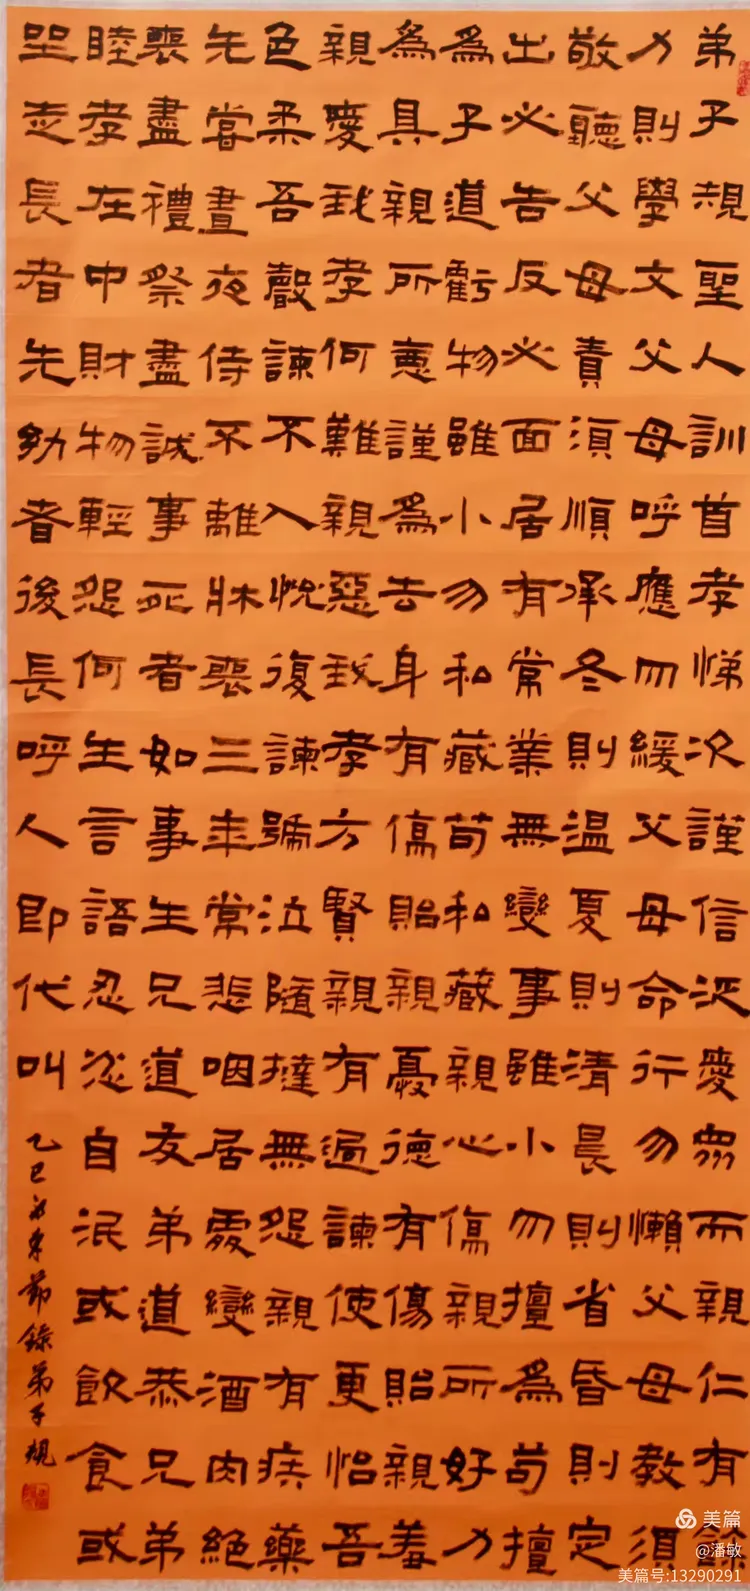 弟子規聖人訓首孝悌次謹信汎愛衆而親仁有餘
力則學文父母呼應勿緩父母命行勿懶父母教須
敬聽父母責須順承冬則温夏則清晨則省昏則定
出必告反必面居有常業無變事雖小勿擅為苟擅
為子道虧物雖小勿私藏苟私藏親心傷親所好力
為具親所惡謹為去身有傷貽親憂德有傷貽親羞
親愛我孝何難親惡我孝方賢親有過諫使更怡吾
色柔吾聲諫不入悅復諫號泣隨撻無怨親有疾藥
先嘗晝夜侍不離牀喪三年常悲咽居處變酒肉絕
喪盡禮祭盡誠事死者如事生兄道友弟道恭兄弟
睦孝在中財物輕怨何生言語忍忿自泯或飲食或
坐走長者先幼者後長呼人即代叫
乙巳節錄弟子規
美篇
@潘敏
美篇号:13290291